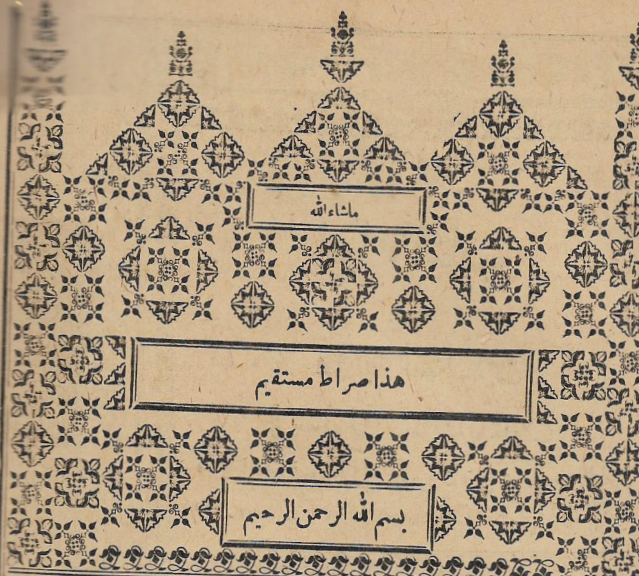 ماشاء الله
هذا صراط مستقيم
بسم الله الرحمن الرحيم